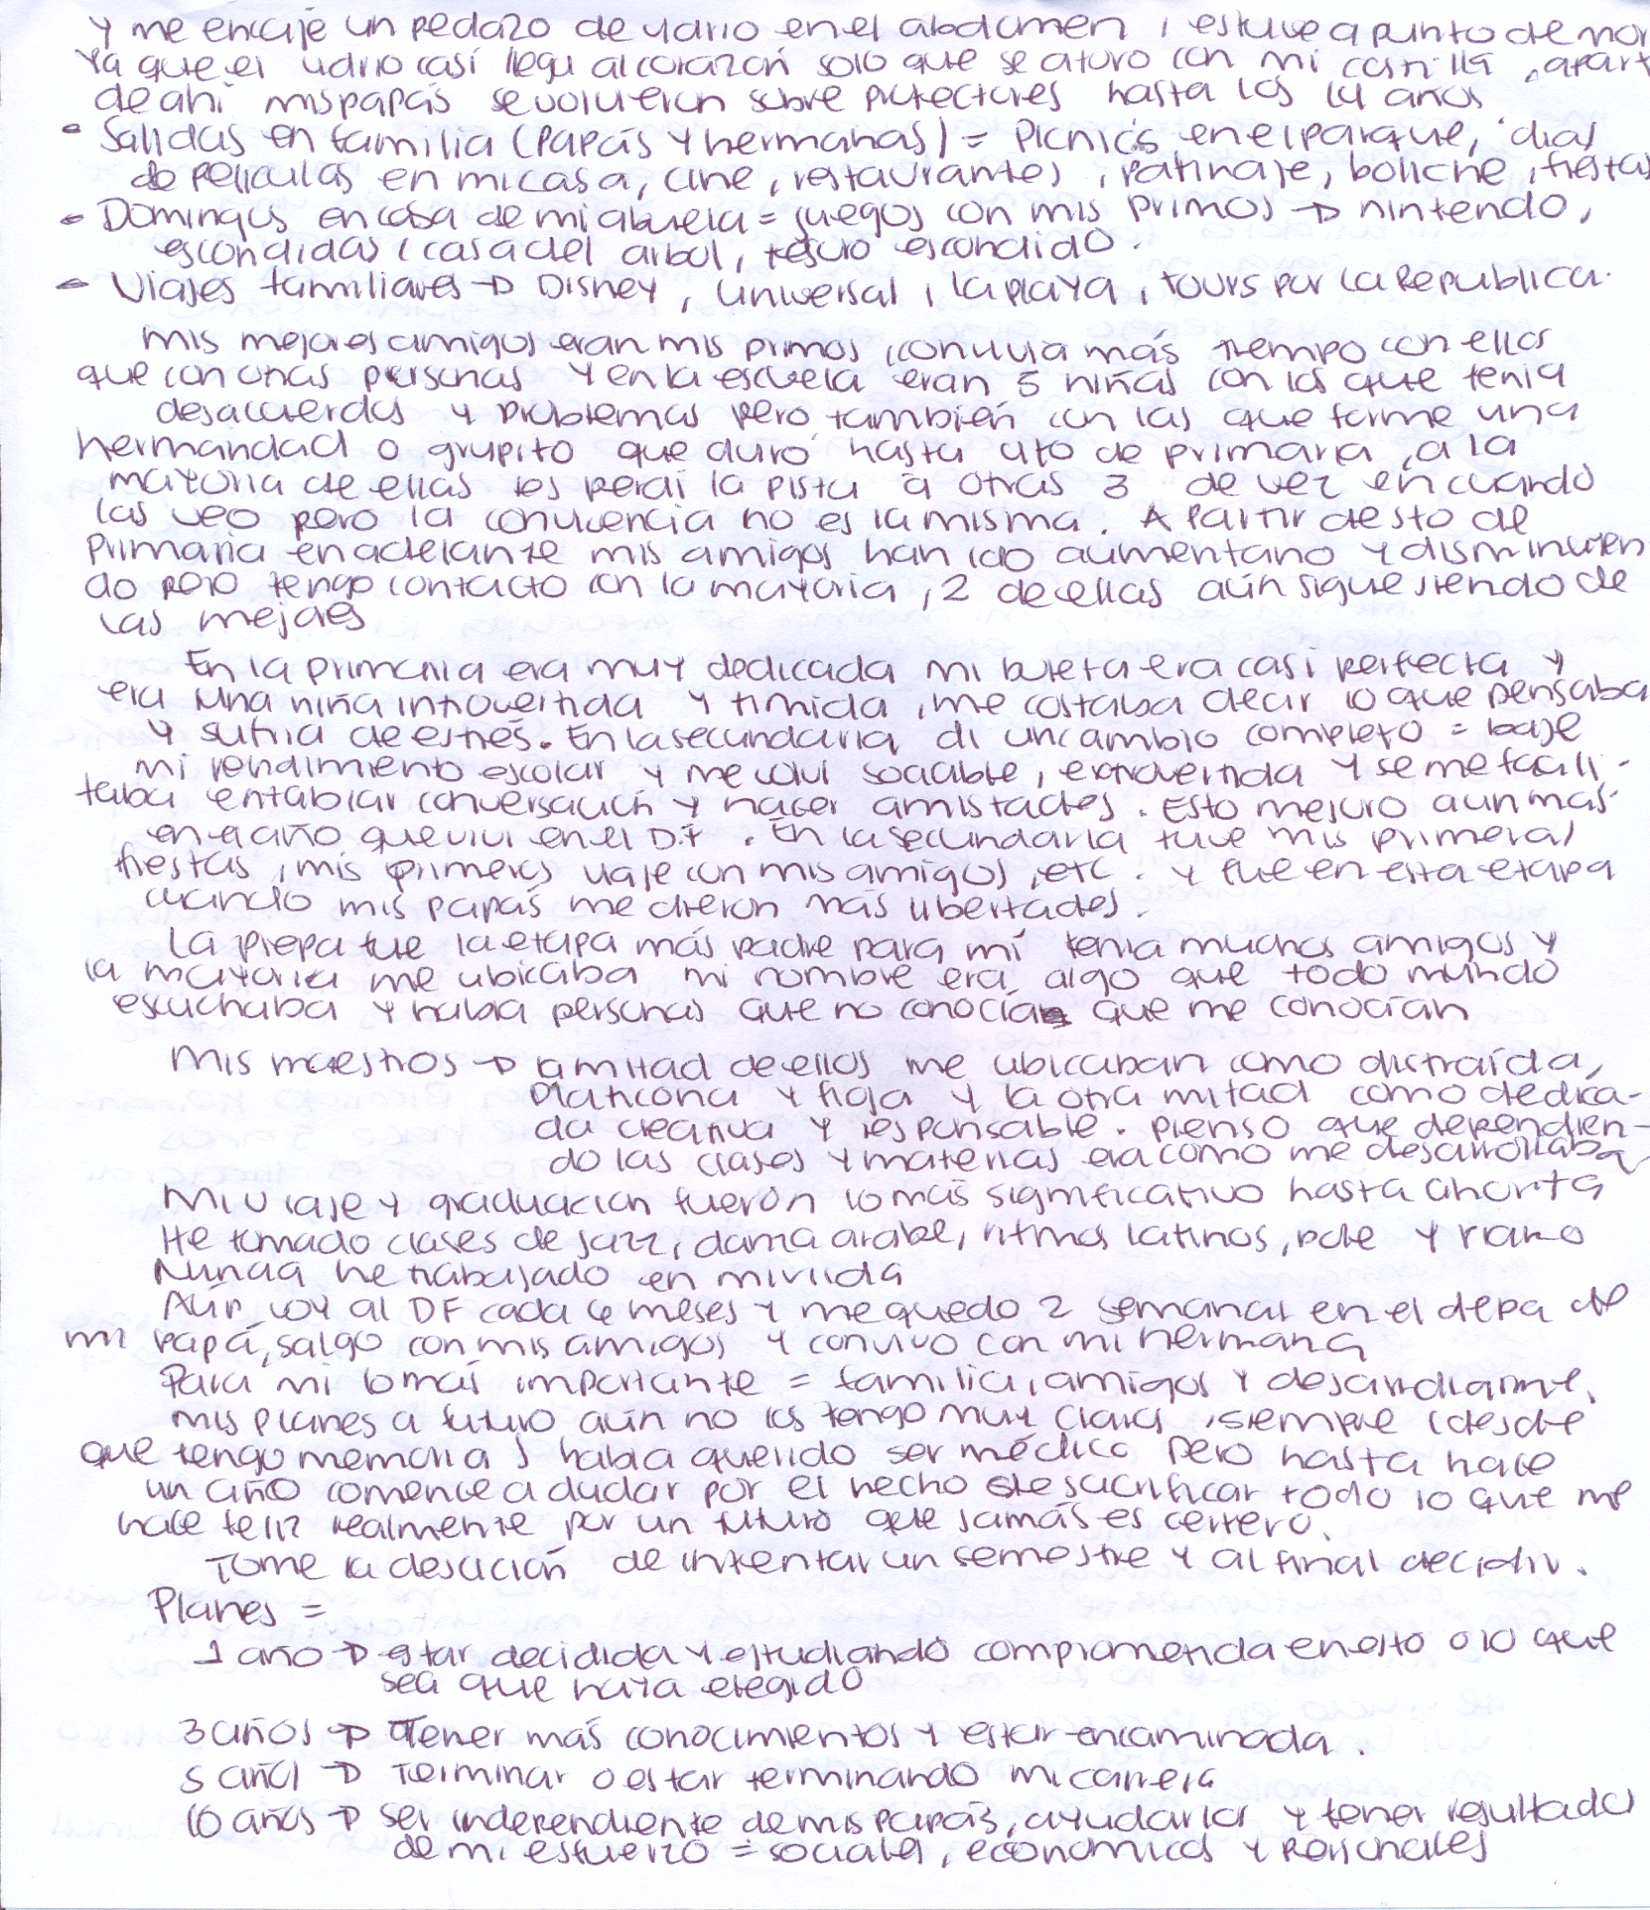 y me encaje un pedazo de vidrio en el abdomen, estuve a punto de mor
ya que el vidrio casí llega al corazón solo que se atoro con mi costilla, apart
de ahí mis papás se volvieron sobre protectores hasta los 14 años
- Salidas en familia (papás y hermanas) = Picnics en el parque, dias
de peliculas en mi casa, cine, restaurantes, patinaje, boliche, fiestas
- Domingos en casa de mi abuela = juegos con mis primos → nintendo,
escondidas, casa del arbol, tesoro escondido.
- Viajes familiares → Disney, Universal, la playa, tours por la Republica.
Mis mejores amigos eran mis primos, convivia más tiempo con ellos
que con otras personas y en la escuela eran 5 niñas con las que tenia
desacuerdos y problemas pero también con las que forme una
hermandad o grupito que duró hasta 4to de primaria, a la
mayoria de ellas les perdi la pista a otras 3 de vez en cuando
las veo pero la convivencia no es la misma. A partir de 5to de
primaria en adelante mis amigos han ido aumentano y disminuyen
do pero tengo contacto con la mayoria, 2 de ellas aún sigue siendo de
las mejores
En la primaria era muy dedicada mi boleta era casi perfecta y
era una niña introvertida y timida, me costaba decir lo que pensaba
y sufria de estrés. En la secundaria di un cambio completo = baje
mi rendimiento escolar y me volvi sociable, extrovertida y se me facili-
taba entablar conversación y hacer amistades. Esto mejoro aun mas
en el año que vivi en el D.F. En la secundaria tuve mis primeras
fiestas, mis primeros viaje con mis amigos, etc. y fue en esta etapa
cuando mis papás me dieron más libertades.
La prepa fue la etapa más padre para mí tenia muchos amigos y
la mayoria me ubicaba mi nombre era algo que todo mundo
escuchaba y habia personas que no conocía que me conocían
Mis maestros → la mitad de ellos me ubicaban como distraída,
platicona y floja y la otra mitad como dedica-
da creativa y responsable. Pienso que dependien-
do las clases y materias era como me desarrollaba
Mi viaje y graduación fuerón lo más significativo hasta ahorita
He tomado clases de jazz, danza arabe, ritmos latinos, pole y piano
Nunca he trabajado en mi vida
Aún voy al DF cada 6 meses y me quedo 2 semanas en el depa de
mi papá, salgo con mis amigos y convivo con mi hermana
Para mi lo más importante = familia, amigos y desarrollarme.
mis planes a futuro aún no los tengo muy claros, siempre (desde
que tengo memoria) habia querido ser médico pero hasta hace
un año comence a dudar por el hecho de sacrificar todo lo que me
hace feliz realmente por un futuro que jamás es certero.
Tome la desición de intentar un semestre y al final decidir.
Planes =
1 año → estar decidida y estudiando comprometida en esto o lo que
sea que haya elegido
3 años → Tener más conocimientos y estar encaminada.
5 años → Terminar o estar terminando mi carrera
10 años → ser independiente de mis papás, ayudarlos y tener resultados
de mi esfuerzo = sociales, economicos y personales